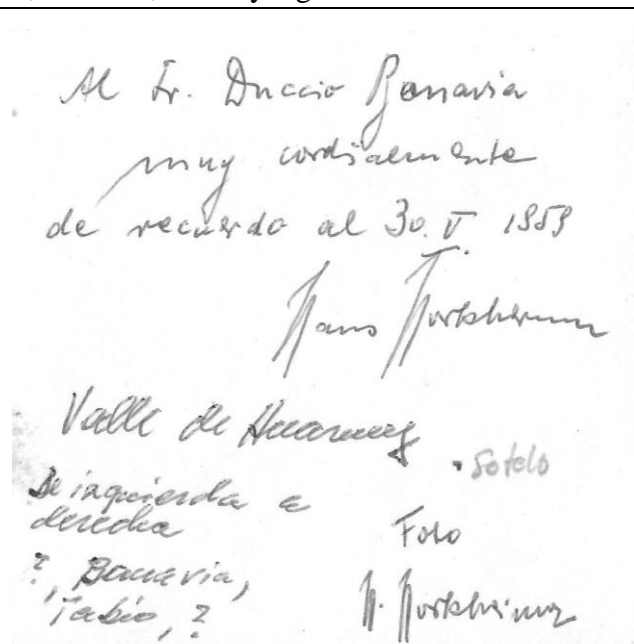 Al Sr. Duccio Bonavia
muy cordialmente
de recuerdo al 30. V. 1959
Hans Horkheimer
Valle de Huarmey
• Sotelo
De izquierda a
derecha
?, Bonavia,
Tabío, ?
Foto
H. Horkheimer